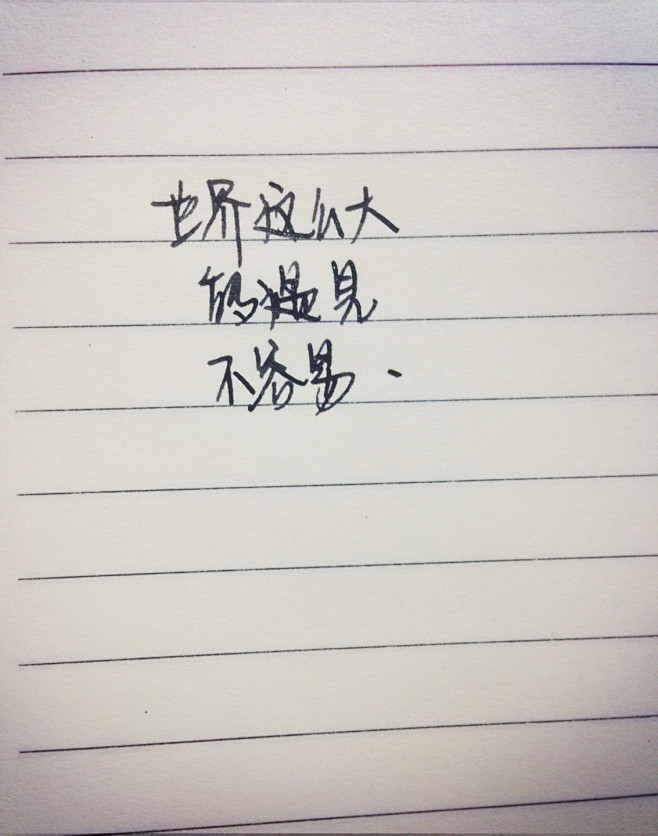 世界这么大
能遇见
不容易.